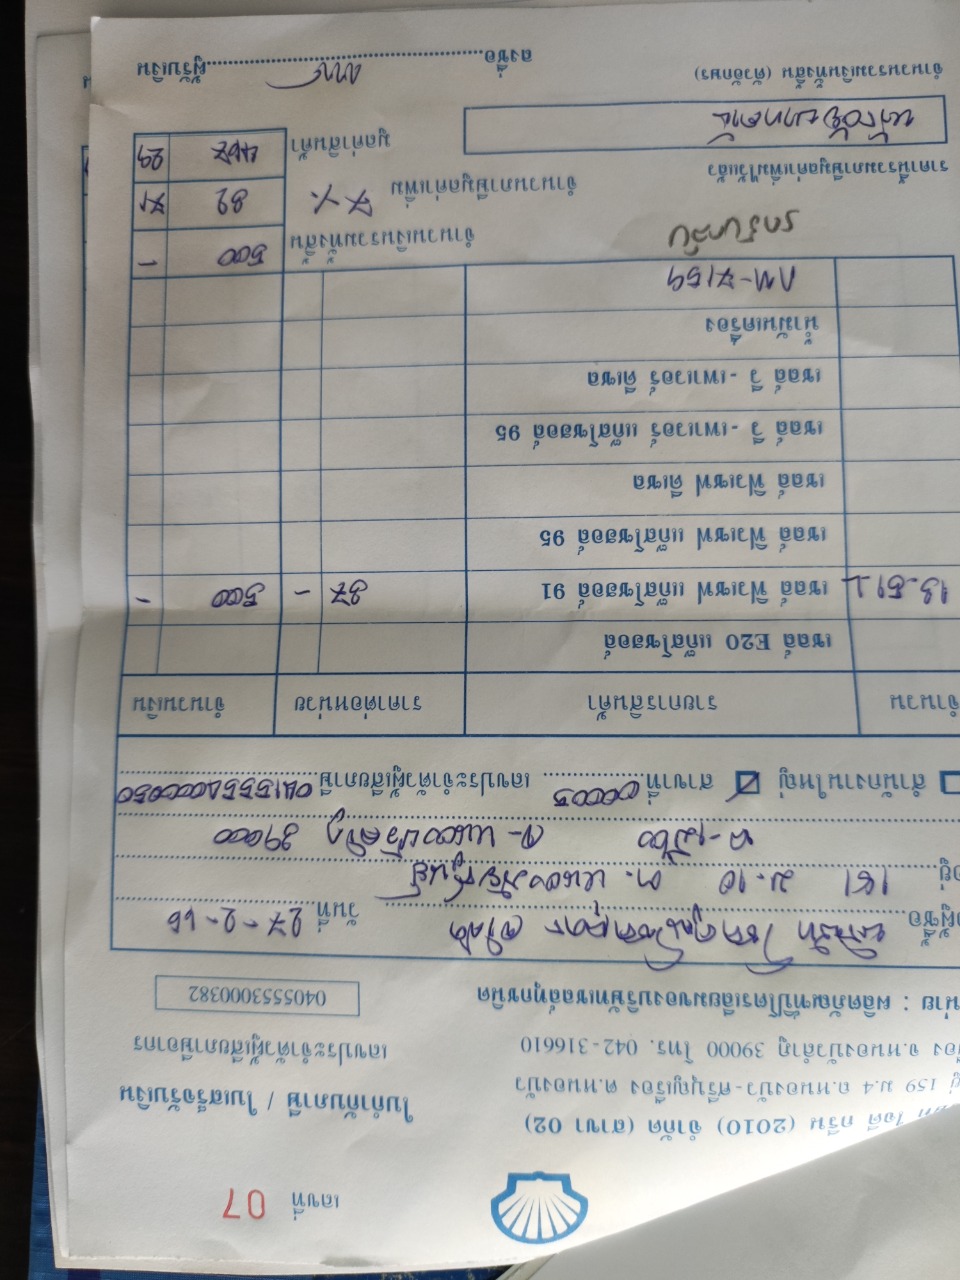 เลขที่ 07
ไอดี กรีน (2010) จำกัด (สาขา 02)
159 ม.4 ถ.หนองบัว-ศรีบุญเรือง ต.หนองบัว
จ.หนองบัวลำภู 39000 โทร. 042-316610
ใบกำกับภาษี / ใบเสร็จรับเงิน
เลขประจำตัวผู้เสียภาษีอากร
: ผลิตภัณฑ์ปิโตรเลียมของบริษัทเชลล์ทุกชนิด
0405553000382
ผู้ซื้อ บริษัท จำกัด วันที่ 27-2-66
181 ม.10 ต. หนองภัยศูนย์
อ.เมือง จ.หนองบัวลำภู 39000
สำนักงานใหญ่ สาขาที่ 00005 เลขประจำตัวผู้เสียภาษี
จำนวน รายการสินค้า ราคาต่อหน่วย จำนวนเงิน
เชลล์ E20 แก๊สโซฮอล์
13.51 L เชลล์ ฟิวเซฟ แก๊สโซฮอล์ 91 37 - 500 -
เชลล์ ฟิวเซฟ แก๊สโซฮอล์ 95
เชลล์ ฟิวเซฟ ดีเซล
เชลล์ วี - เพาเวอร์ แก๊สโซฮอล์ 95
เชลล์ วี - เพาเวอร์ ดีเซล
น้ำมันเครื่อง
กม-7159
จำนวนเงินรวมทั้งสิ้น 500 -
ราคานี้รวมภาษีมูลค่าเพิ่มไว้แล้ว จำนวนภาษีมูลค่าเพิ่ม 7 % 32 71
ห้าร้อยบาทถ้วน มูลค่าสินค้า 467 29
จำนวนรวมเงินทั้งสิ้น (ตัวอักษร)
ลงชื่อ ผู้รับเงิน